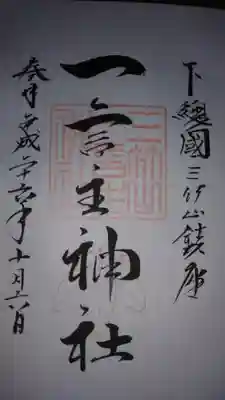 下總國三竹山鎮座
一言主神社
奉拝 平成二十六年十月十六日